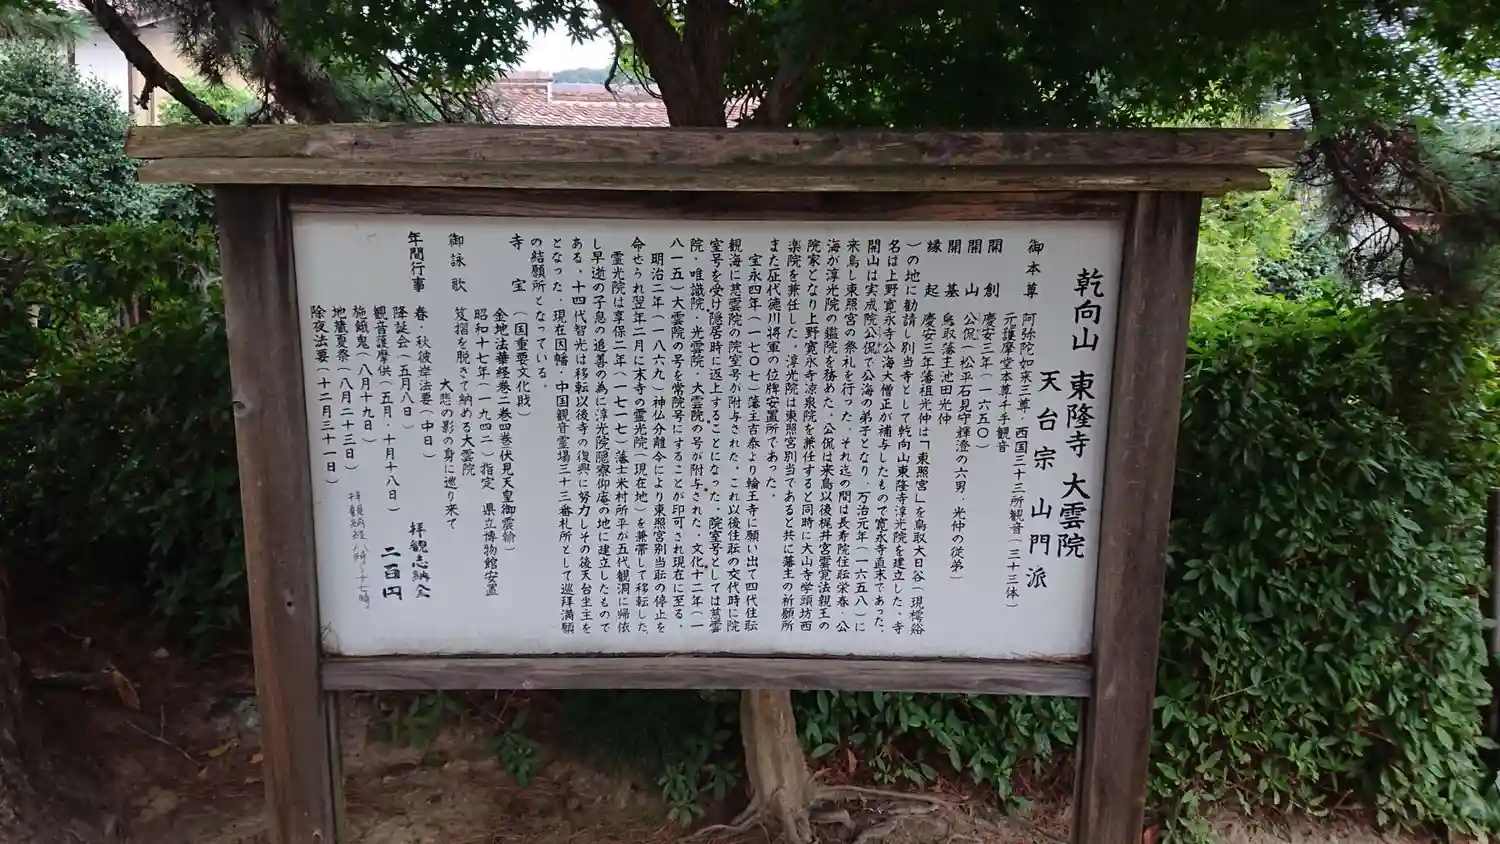 乾向山 東隆寺 大雲院
天台宗 山門派
御本尊 阿弥陀如来三尊・西国三十三所観音(三十三体)
元護摩堂本尊千手観音
開創 慶安三年(一六五〇)
開山 公侃(松平石見守輝澄の六男・光仲の従弟)
開基 鳥取藩主池田光仲
縁起 慶安三年藩祖光仲は「東照宮」を鳥取大日谷(現樗谿
)の地に勧請し別当寺として乾向山東隆寺淳光院を建立した。寺
名は上野寛永寺公海大僧正が補与したもので寛永寺直末であった。
開山は実成院公侃で公海の弟子となり、万治元年(一六五八)に
来鳥し東照宮の祭礼を行った。それ迄の間は長寿院住耘栄春・公
海が淳光院の鑑院を務めた。公侃は来鳥以後梶井宮霊覚法親王の
院家となり上野寛永寺涼泉院を兼任すると同時に大山寺学頭坊西
楽院を兼任した。淳光院は東照宮別当であると共に藩主の祈願所
また歴代徳川将軍の位牌安置所であった。
宝永四年(一七〇七)藩主吉泰より輪王寺に願い出て四代住耘
観海に慈雲院の院室号が附与された。これ以後住耘の交代時に院
室号を受け隠居時に返上することになった。院室号としては慈雲
院・唯識院・光雲院・大雲院の号が附与された。文化十二年(一
八一五)大雲院の号を常院号にすることが印可され現在に至る。
明治二年(一八六九)神仏分離令により東照宮別当耘の停止を
命せられ翌年二月に末寺の霊光院(現在地)を兼帯して移転した。
霊光院は享保二年(一七一七)藩士米村所平が五代観洞に帰依
し早逝の子息の追善の為に淳光院隠寮仰庵の地に建立したもので
ある。十四代智光は移転以後寺の復興に努力しその後天台座主を
となった。現在因幡・中国観音霊場三十三番札所として巡拜満願
の結願所となっている。
寺宝 (国重要文化財)
金地法華経巻二巻四巻伏見天皇御震翰)
昭和十七年(一九四二)指定 県立博物館安置
御詠歌 笈摺を脱ぎて納める大雲院
大悲の影の身に巡り来て
年間行事 春・秋彼岸法要(中日)
降誕会(五月八日)
観音護摩供(五月・十月十八日)
施餓鬼(八月十九日)
地蔵夏祭(八月二十三日)
除夜法要(十二月三十一日)
拝観志納金
二百円
拝観納経八時〜十七時